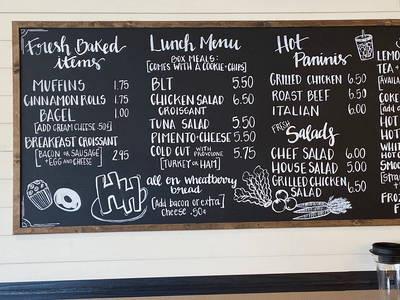 Fresh Baked
items
MUFFINS 1.75
CINNAMON ROLLS 1.75
BAGEL 1.00
[ADD CREAM CHEESE .50]
BREAKFAST CROISSANT
[BACON OR SAUSAGE
+ EGG AND CHEESE] 2.95
HH
Lunch Menu
BOX MEALS:
[COMES WITH A COOKIE + CHIPS]
BLT 5.50
CHICKEN SALAD 6.50
CROISSANT
TUNA SALAD 5.50
PIMENTO CHEESE 5.50
COLD CUT WITH PROVOLONE 5.75
[TURKEY OR HAM]
all on wheatberry
bread
[Add bacon or extra]
cheese .50¢
Hot
Paninis
GRILLED CHICKEN 6.50
ROAST BEEF 6.50
ITALIAN 6.00
FRESH
Salads
CHEF SALAD 6.00
HOUSE SALAD 5.00
GRILLED CHICKEN 6.50
SALAD